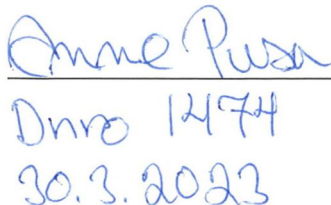 Anne Pusa
Dnro 1474
30.3.2023